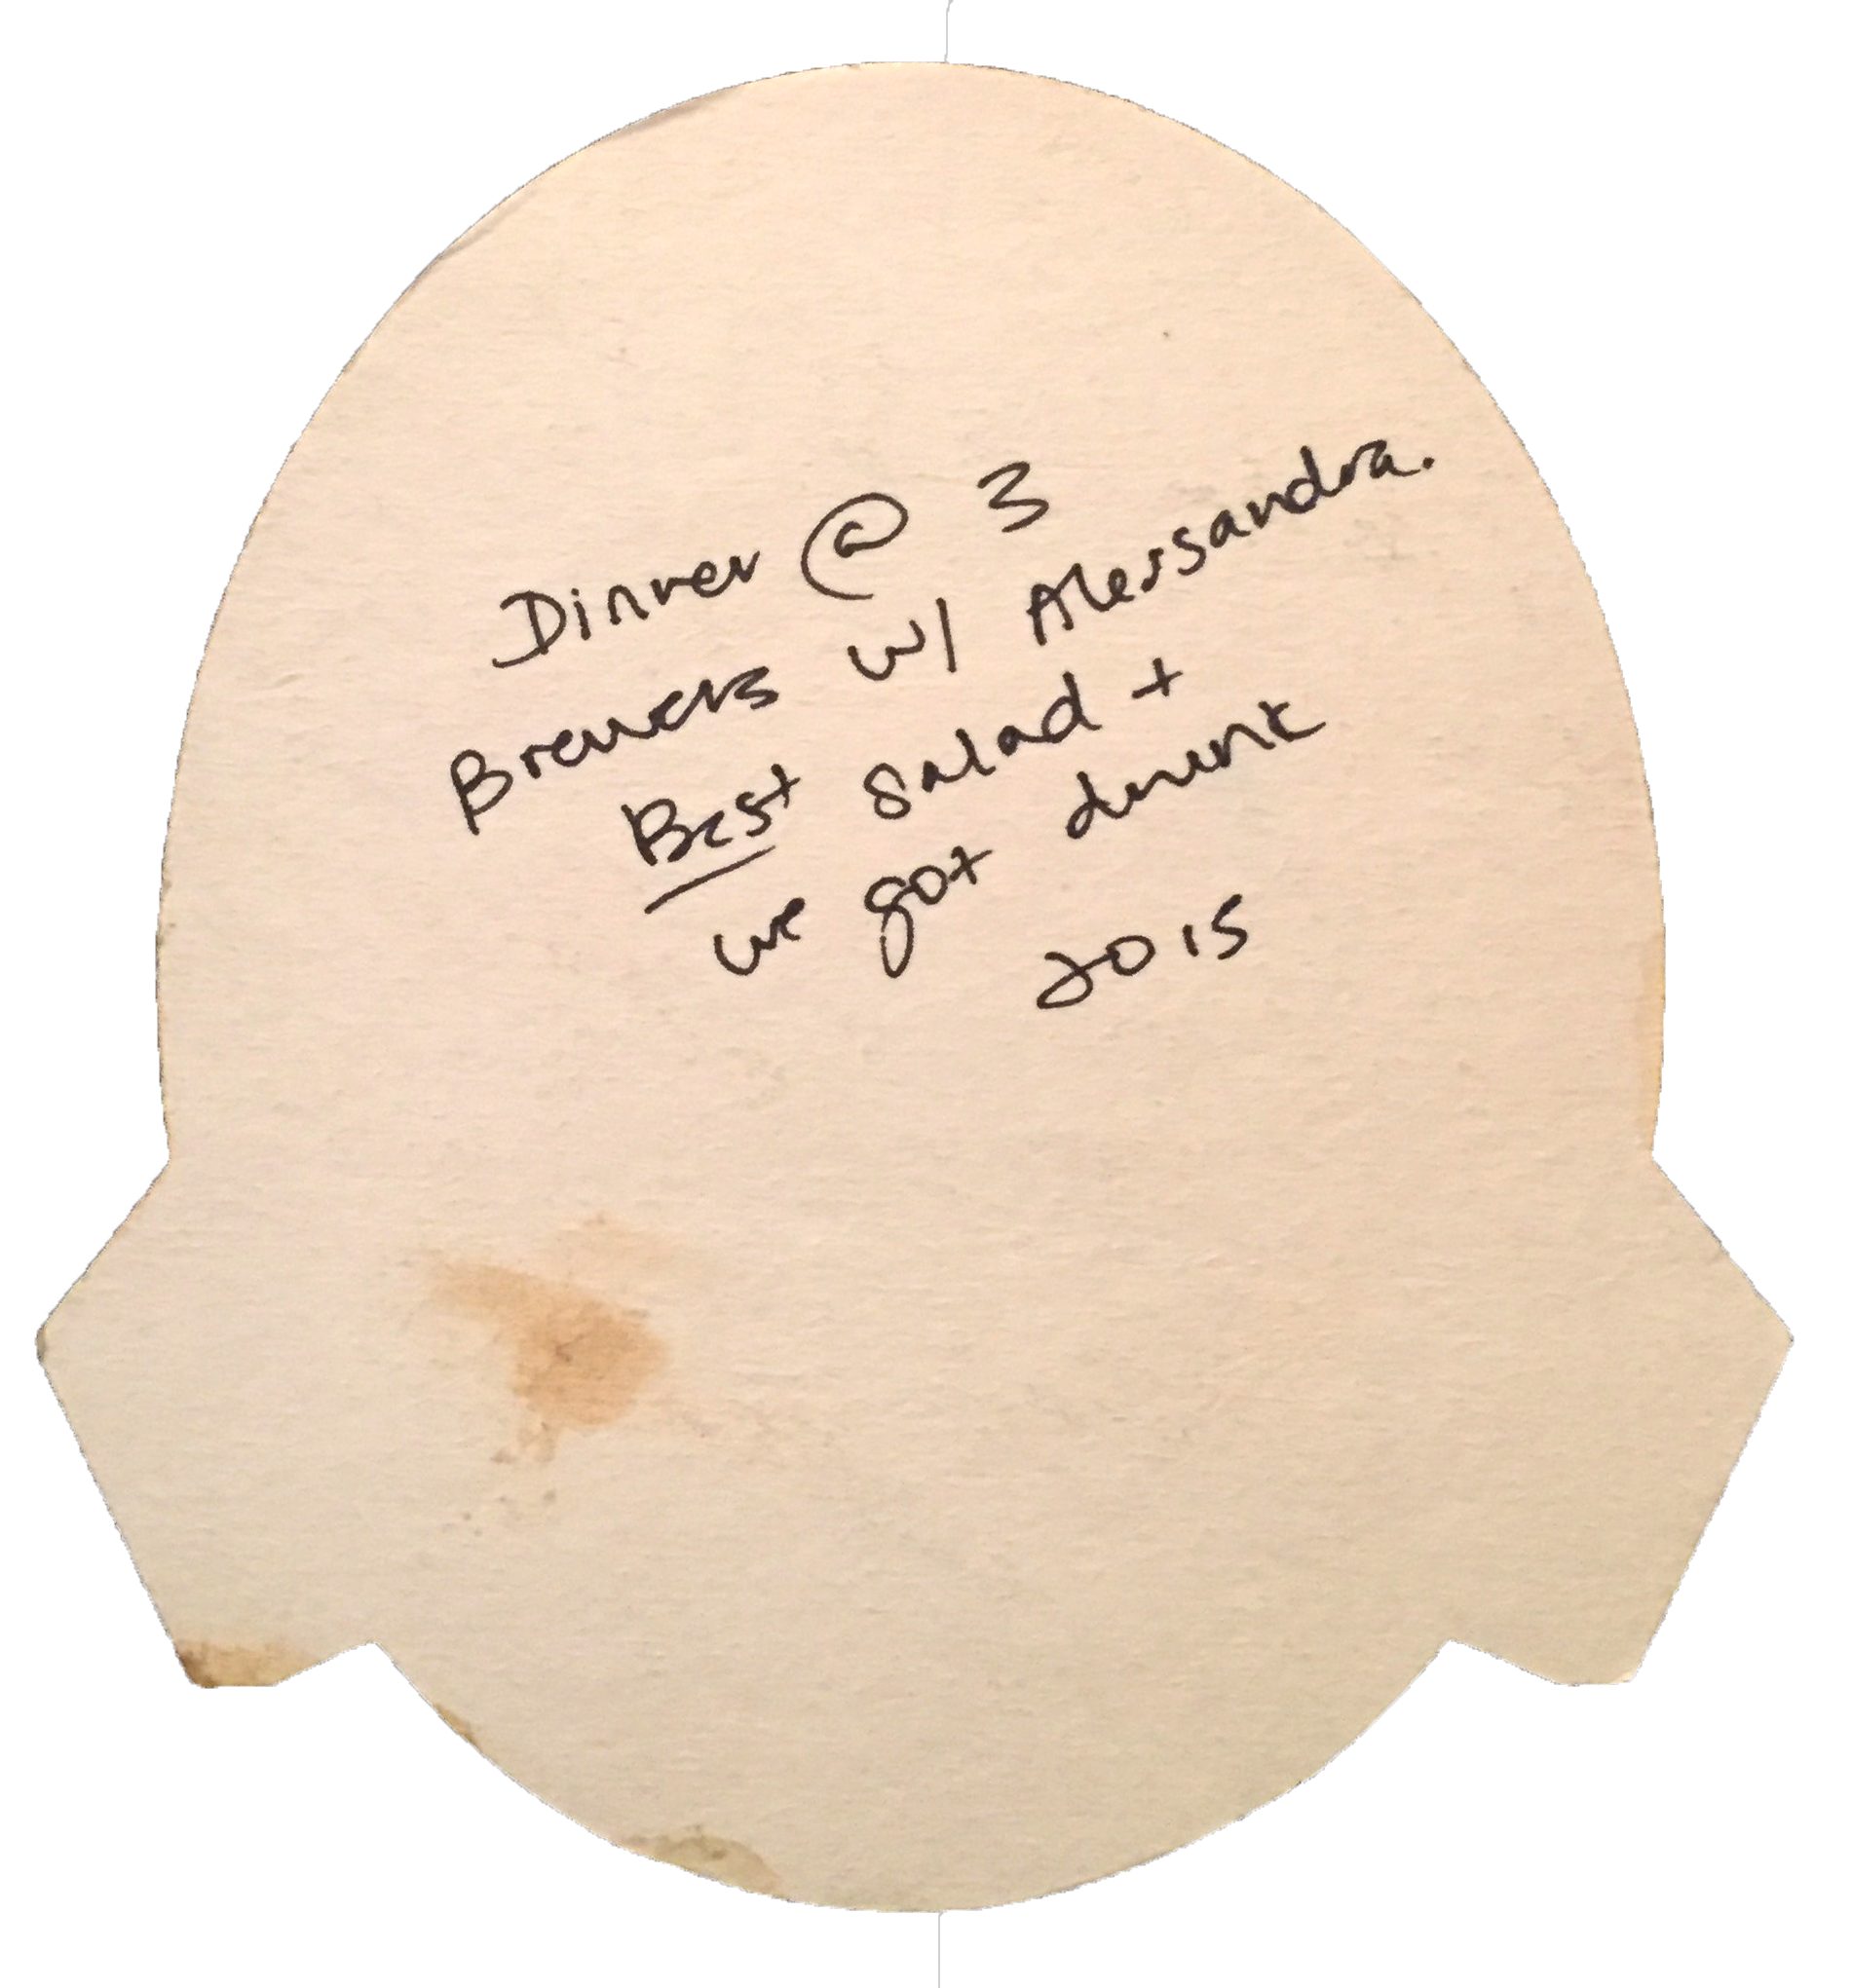 Dinner @ 3
Brewers w/ Alessandra.
Best salad +
we got drunk
2015